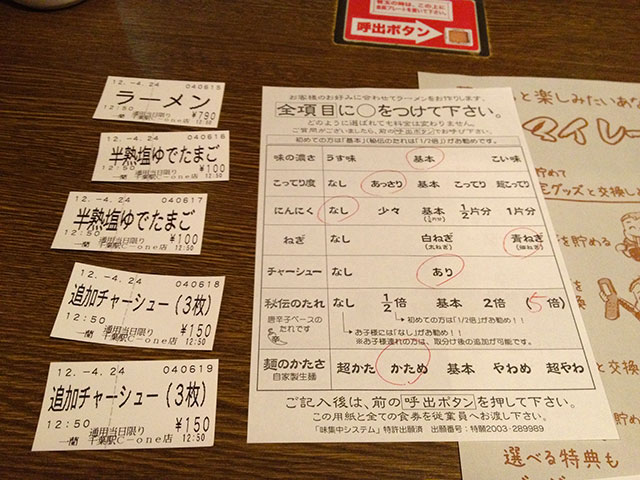 呼出ボタン
12.-4.24 040615
ラーメン
12:50 ¥790
通用当日限り
一蘭 千葉駅C-one店 12:50
12.-4.24 040616
半熟塩ゆでたまご
12:50 ¥100
通用当日限り
一蘭 千葉駅C-one店 12:50
12.-4.24 040617
半熟塩ゆでたまご
12:50 ¥100
通用当日限り
一蘭 千葉駅C-one店 12:50
12.-4.24 040618
追加チャーシュー(3枚)
12:50 ¥150
通用当日限り
一蘭 千葉駅C-one店 12:50
12.-4.24 040619
追加チャーシュー(3枚)
12:50 ¥150
通用当日限り
一蘭 千葉駅C-one店 12:50
お客様のお好みに合わせてラーメンをお作りします。
全項目に○をつけて下さい。
どのように選ばれても料金は変わりません。
ご質問がございましたら、前の呼出ボタンでお呼び下さい。
初めての方は「基本」(秘伝のたれは「1/2倍」)がお勧めです。
味の濃さ うす味 基本 こい味
こってり度 なし あっさり 基本 こってり 超こってり
にんにく なし 少々 基本 1/2片分 1片分
ねぎ なし 白ねぎ 青ねぎ
(太ねぎ) (細ねぎ)
チャーシュー なし あり
秘伝のたれ なし 1/2倍 基本 2倍 (5倍)
唐辛子ベースのたれです
初めての方は「1/2倍」がお勧め!!
お子様には「なし」がお勧め!!
※お子様連れの方は、取分け後の追加が可能です。
麺のかたさ 超かた かため 基本 やわめ 超やわ
自家製生麺
ご記入後は、前の呼出ボタンを押して下さい。
この用紙と全ての食券を従業員へお渡し下さい。
「味集中システム」特許出願済 出願番号:特願2003-289989
と楽しみたいあな
マイレ
貯めて
グッズと交換し
を貯める
と交換
選べる特典も